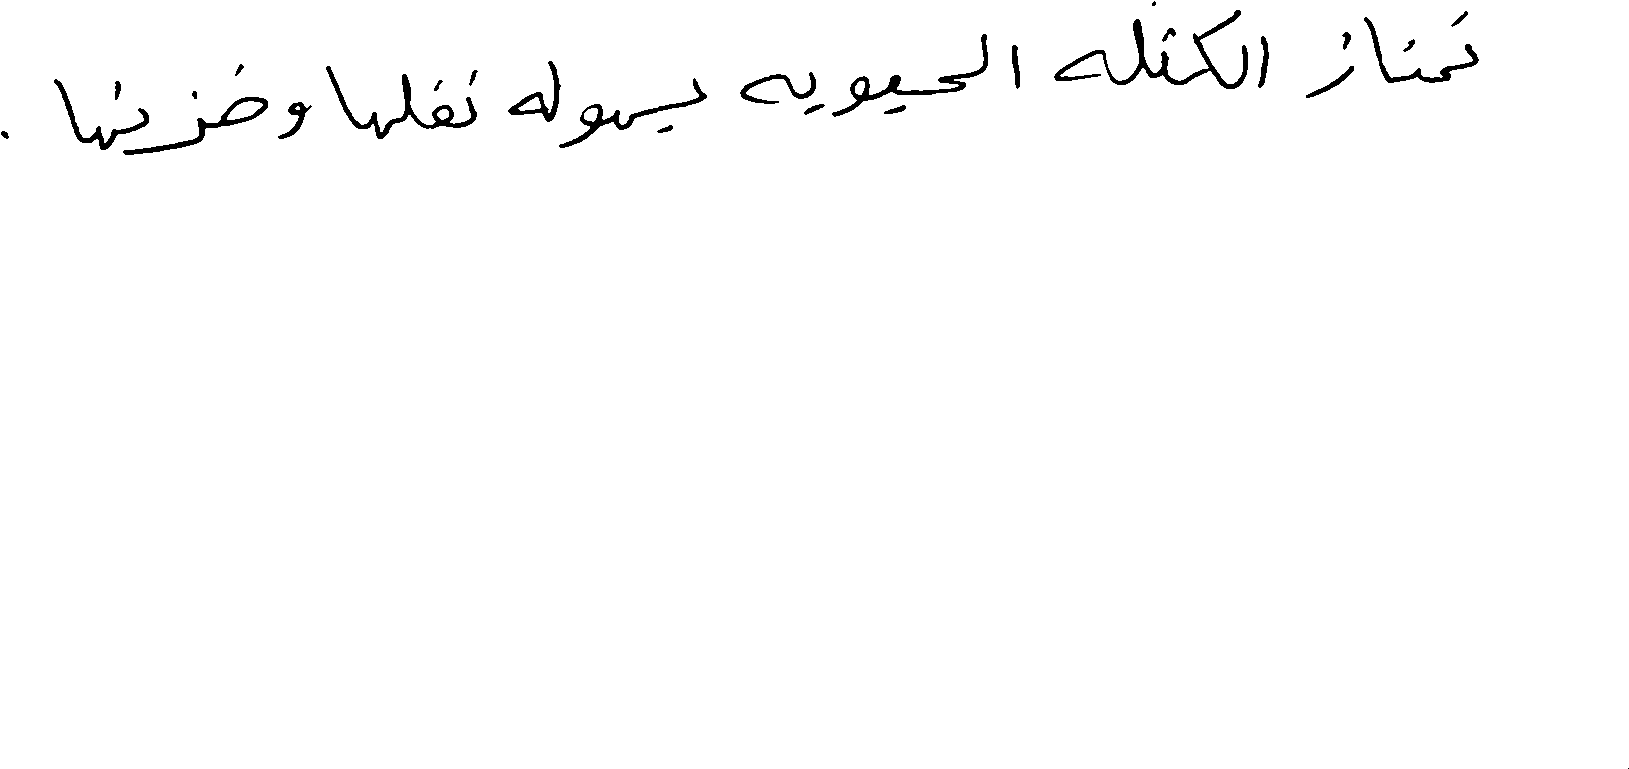 تمتاز الكتله الحيويه بسهوله نقلها وخزنها .